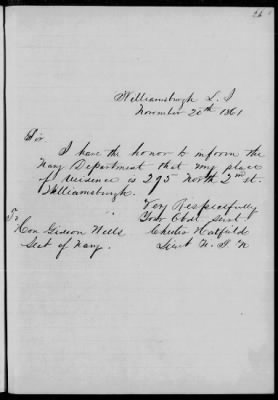 Williamsburgh L. I
November 20th 1861
Sir
I have the honor to inform the
Navy Department that my place
of residence is 295 North 2nd st.
Williamsburgh.
Very Respectfully
Your Obdt Servt
Chester Hatfield
Lieut U. S. N
To
Hon Gideon Wells
Sect of Navy.